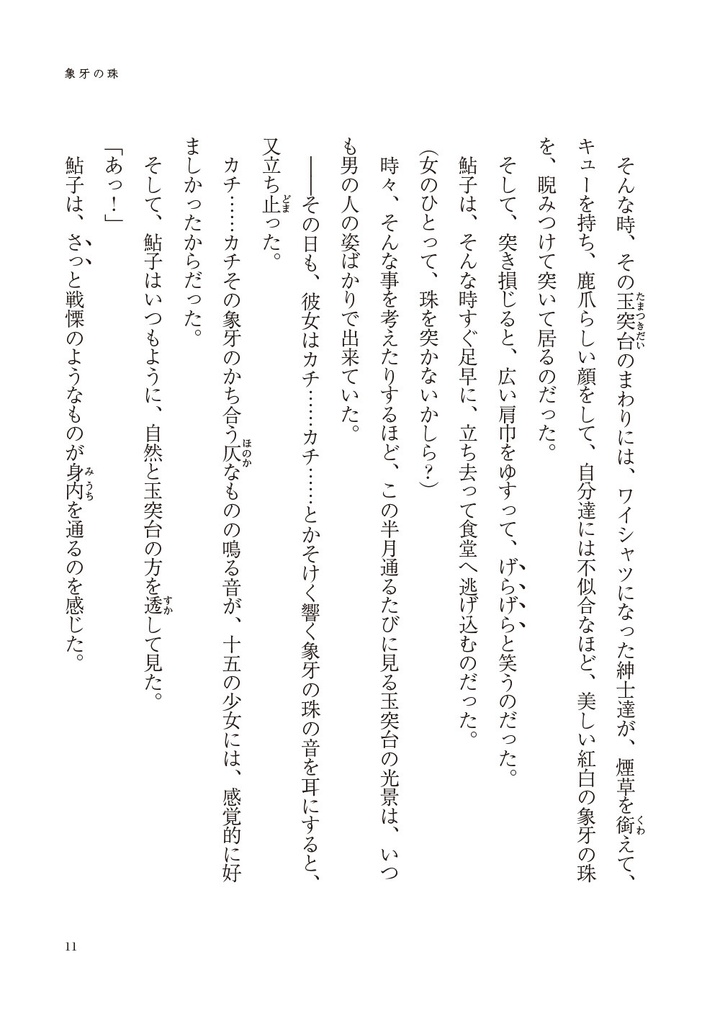 象牙の珠
そんな時、その玉突台のまわりには、ワイシャツになった紳士達が、煙草を銜えて、
キューを持ち、鹿爪らしい顔をして、自分達には不似合なほど、美しい紅白の象牙の珠
を、睨みつけて突いて居るのだった。
そして、突き損じると、広い肩巾をゆすって、げらげらと笑うのだった。
鮎子は、そんな時すぐ足早に、立ち去って食堂へ逃げ込むのだった。
(女のひとって、珠を突かないかしら?)
時々、そんな事を考えたりするほど、この半月通るたびに見る玉突台の光景は、いつ
も男の人の姿ばかりで出来ていた。
――その日も、彼女はカチ……カチ……とかそけく響く象牙の珠の音を耳にすると、
又立ち止った。
カチ……カチその象牙のかち合う仄なものの鳴る音が、十五の少女には、感覚的に好
ましかったからだった。
そして、鮎子はいつもように、自然と玉突台の方を透して見た。
「あっ!」
鮎子は、さっと戦慄のようなものが身内を通るのを感じた。
11